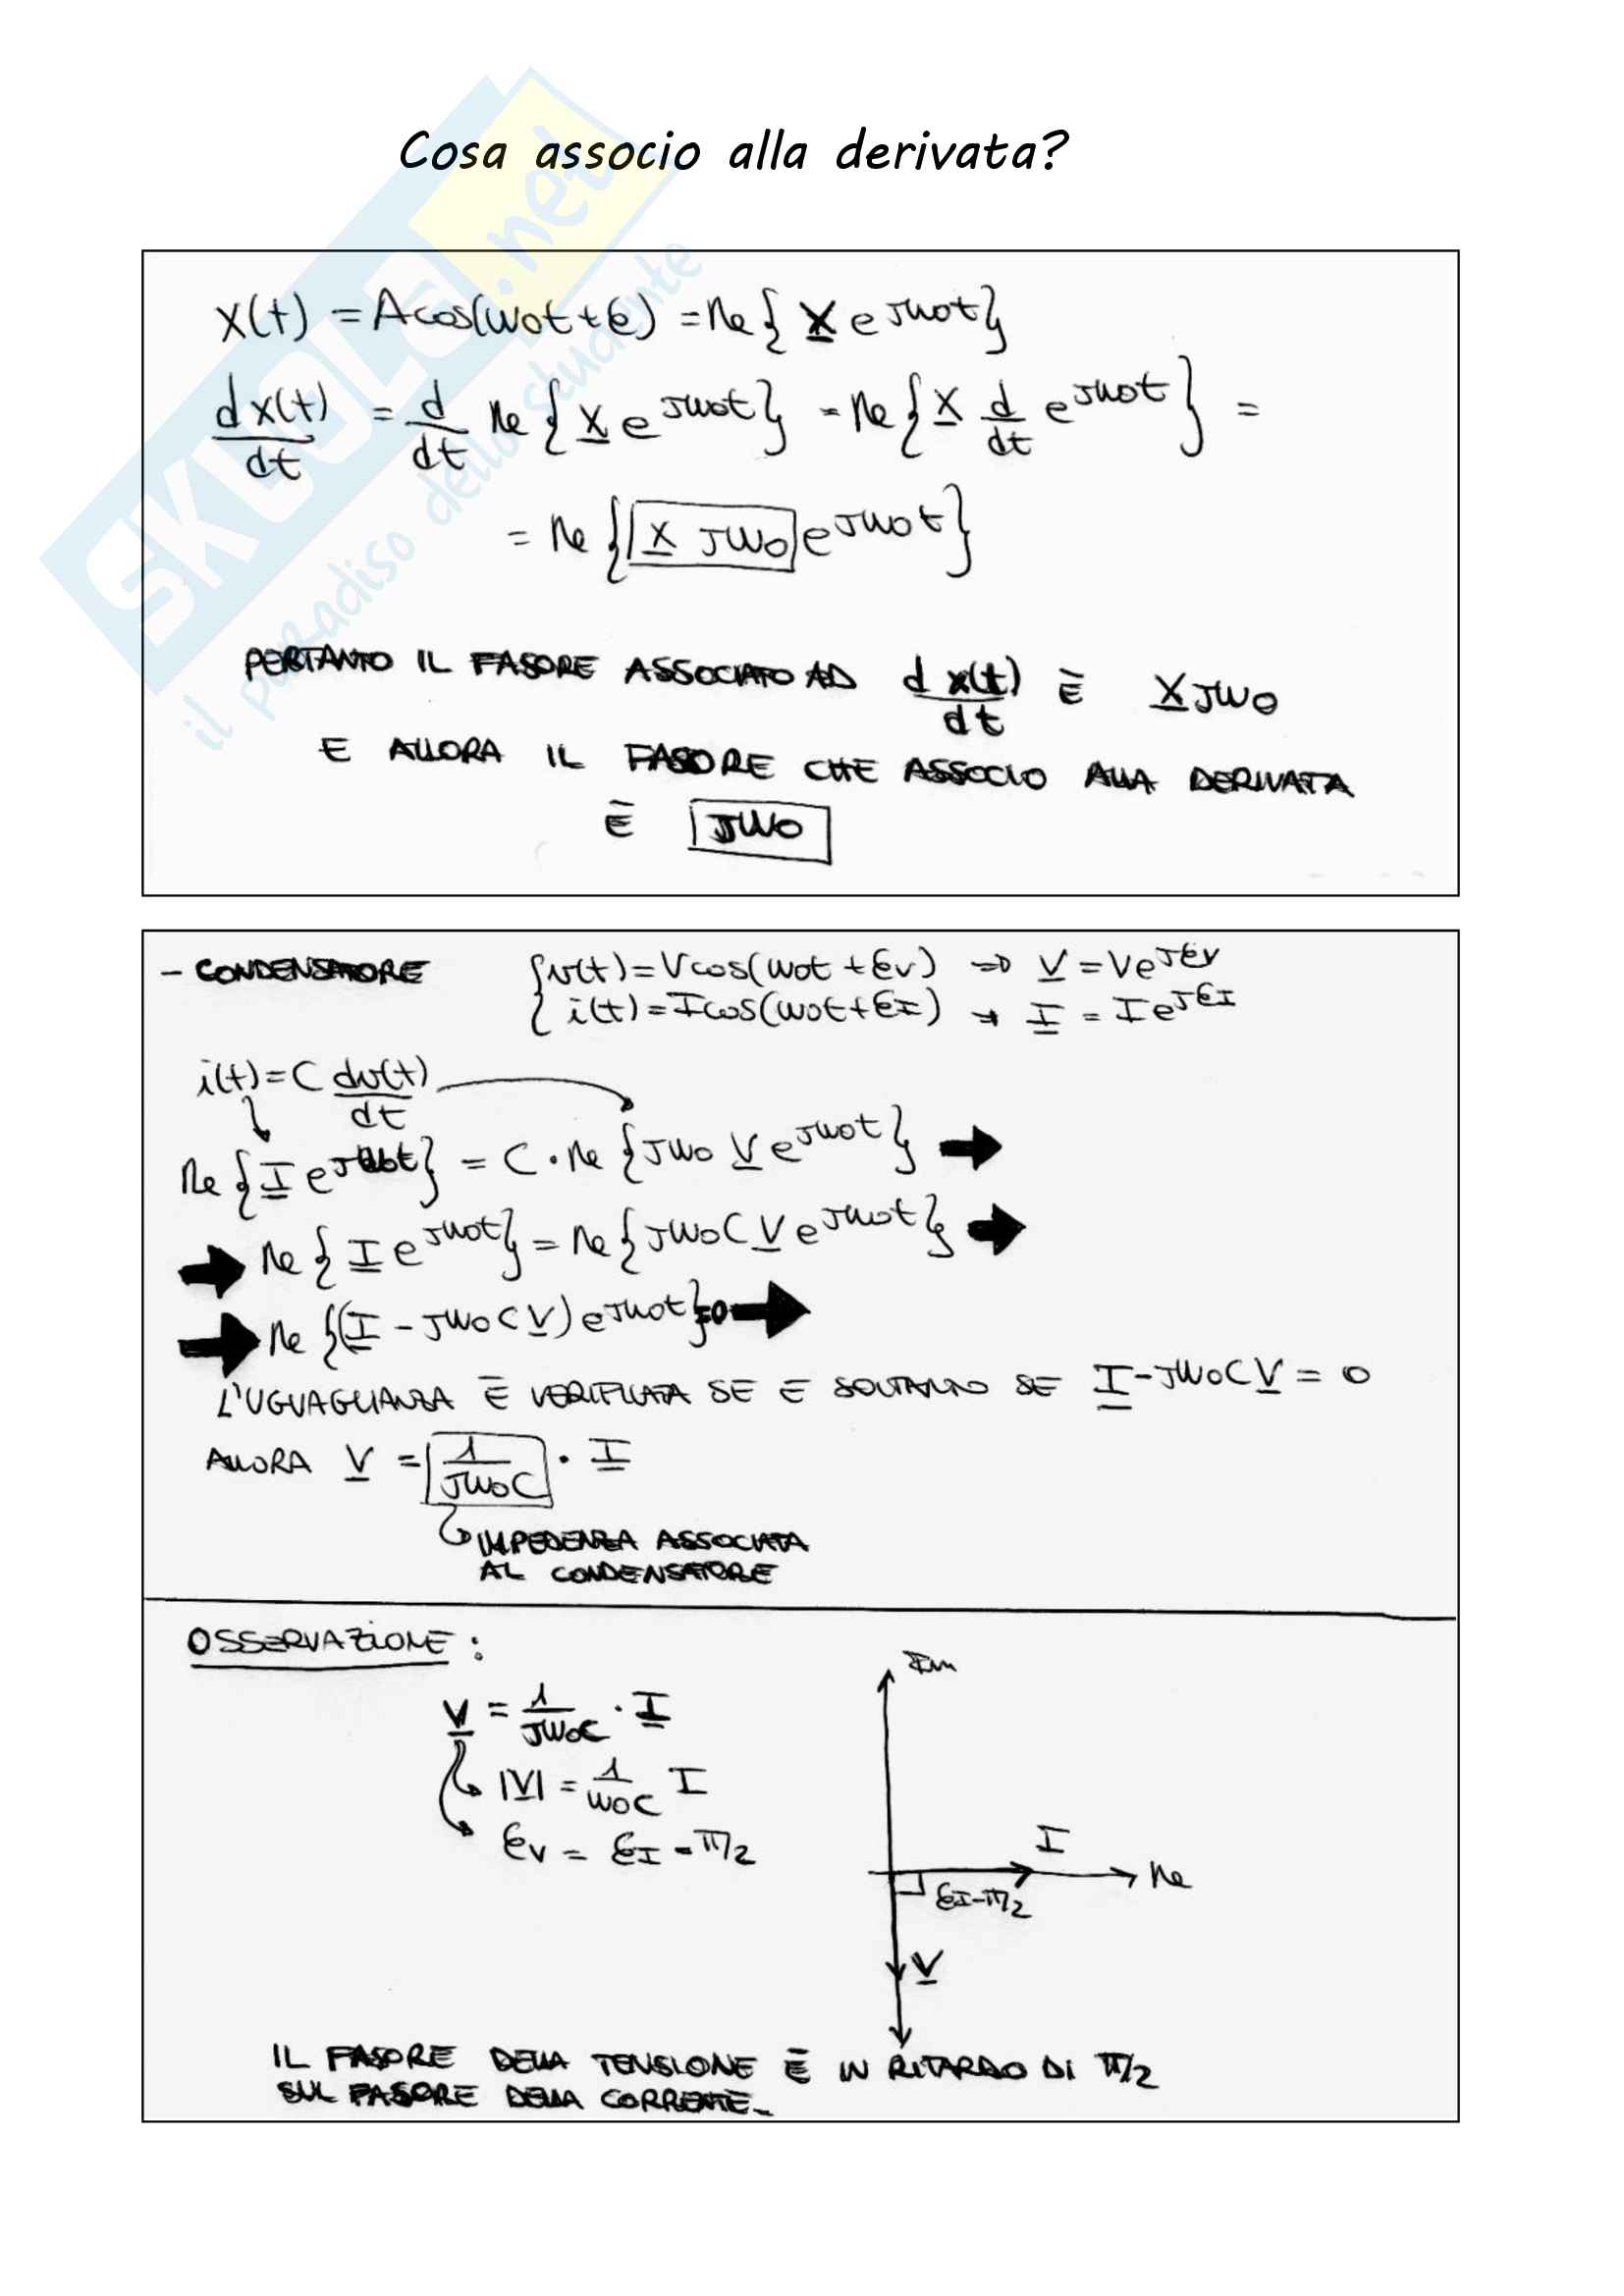 Cosa associo alla derivata?
SKUOLA.net
il paradiso dello studente
x(t) = A cos(ω0t + ε) = Re{ X e^jω0t }
dx(t)/dt = d/dt Re{ X e^jω0t } = Re{ X d/dt e^jω0t } =
= Re{ X jω0 e^jω0t }
PERTANTO IL FASORE ASSOCIATO AD d x(t)/dt È X jω0
E ALLORA IL FASORE CHE ASSOCIO ALLA DERIVATA
È jω0
- CONDENSATORE
v(t) = V cos(ω0t + εv) ⇒ V = V e^jεv
i(t) = I cos(ω0t + εI) → I = I e^jεI
i(t) = C dv(t)/dt
Re{ I e^jω0t } = C · Re{ jω0 V e^jω0t }
Re{ I e^jω0t } = Re{ jω0C V e^jω0t }
Re{ (I - jω0 C V) e^jω0t } = 0
L'UGUAGLIANZA È VERIFICATA SE E SOLTANTO SE I - jω0C V = 0
ALLORA V = 1/jω0C · I
IMPEDENZA ASSOCIATA
AL CONDENSATORE
OSSERVAZIONE :
V = 1/jω0C · I
|V| = 1/ω0C I
εv = εI - π/2
Im
I
Re
εI - π/2
V
IL FASORE DELLA TENSIONE È IN RITARDO DI π/2
SUL FASORE DELLA CORRENTE.